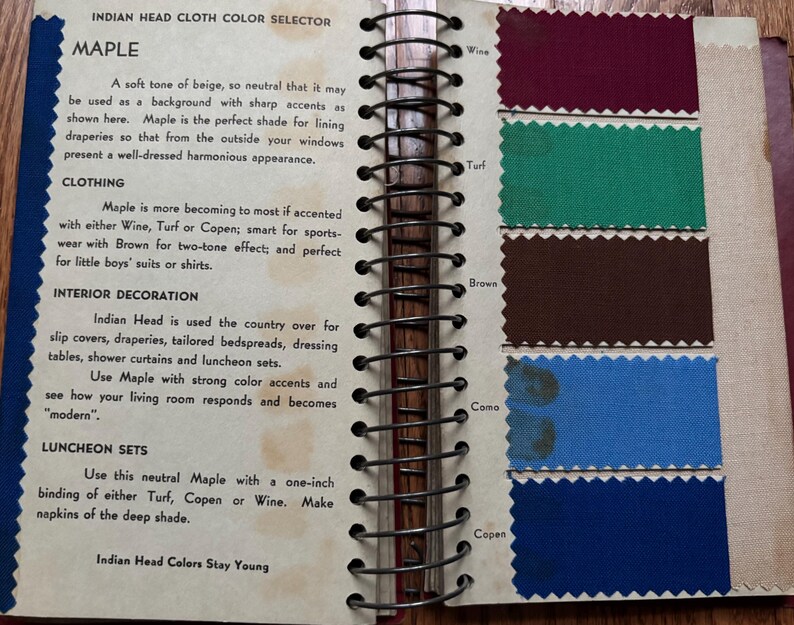 INDIAN HEAD CLOTH COLOR SELECTOR
MAPLE
A soft tone of beige, so neutral that it may
be used as a background with sharp accents as
shown here. Maple is the perfect shade for lining
draperies so that from the outside your windows
present a well-dressed harmonious appearance.
CLOTHING
Maple is more becoming to most if accented
with either Wine, Turf or Copen; smart for sports-
wear with Brown for two-tone effect; and perfect
for little boys' suits or shirts.
INTERIOR DECORATION
Indian Head is used the country over for
slip covers, draperies, tailored bedspreads, dressing
tables, shower curtains and luncheon sets.
Use Maple with strong color accents and
see how your living room responds and becomes
"modern".
LUNCHEON SETS
Use this neutral Maple with a one-inch
binding of either Turf, Copen or Wine. Make
napkins of the deep shade.
Indian Head Colors Stay Young
Wine
Turf
Brown
Como
Copen